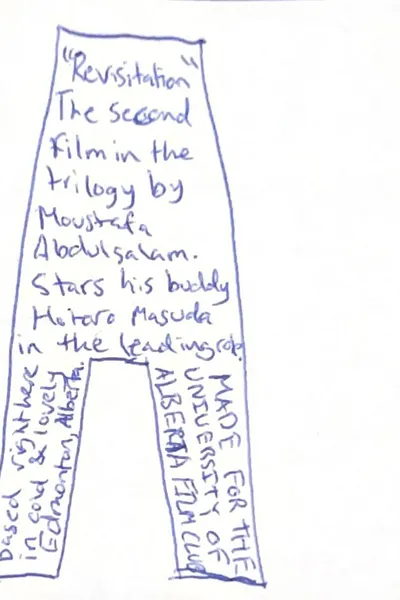 "Revisitation"
The second
film in the
trilogy by
Moustafa
Abdulsalam.
Stars his buddy
Hotaro Masuda
in the leading role.
based right here
in cold & lovely
Edmonton, Alberta.
MADE FOR THE
UNIVERSITY OF
ALBERTA FILM CLUB